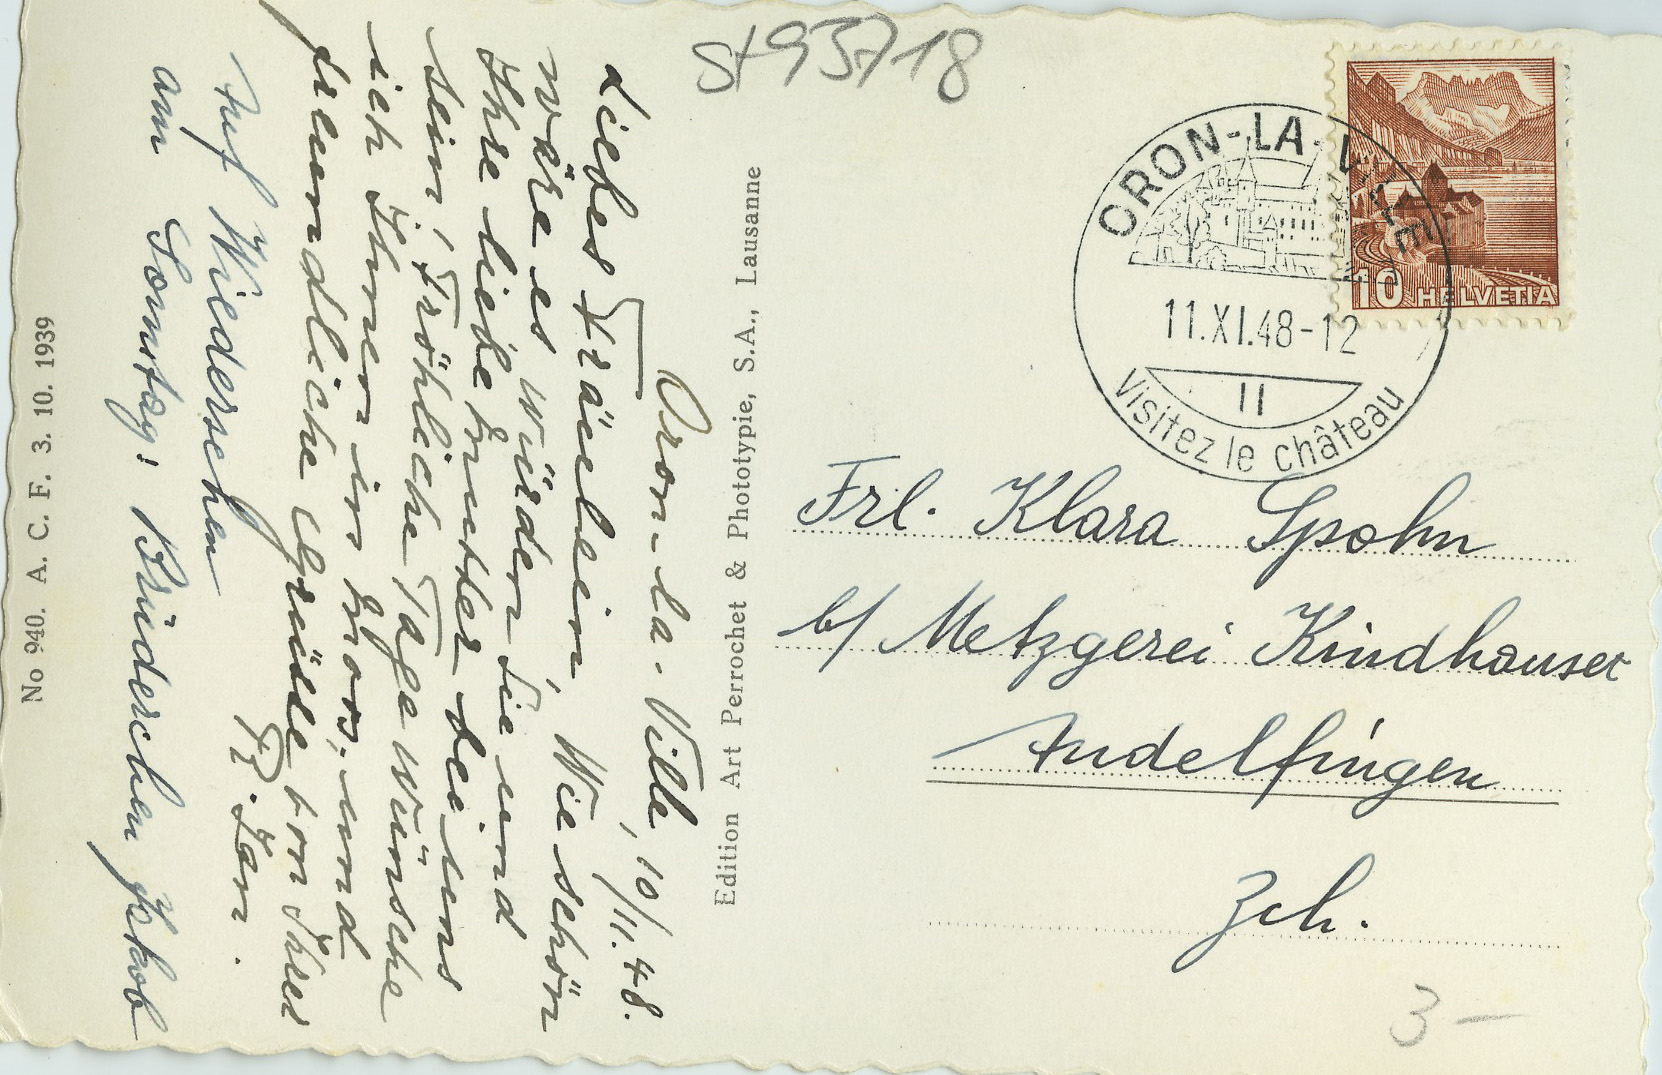 St 93718
Oron-la-Ville, 10/11.48.
Liebes Fräulein, Wie schön
wäre es würden Sie und
Ihre liebe Mutter bei uns
sein! Fröhliche Tage wünsche
ich Ihnen in und
freundliche Grüsse von Ihrer
Fr.
Auf Wiedersehen
am Sonntag! Brüderchen Jakob
No 940. A. C. F. 3. 10. 1939
Edition Art Perrochet & Phototypie, S.A., Lausanne
ORON-LA-VILLE
11.XI.48-12
II
Visitez le château
10 HELVETIA
Frl. Klara Spohn
b/ Metzgerei Kindhauser
Andelfingen
Zch.
3 –